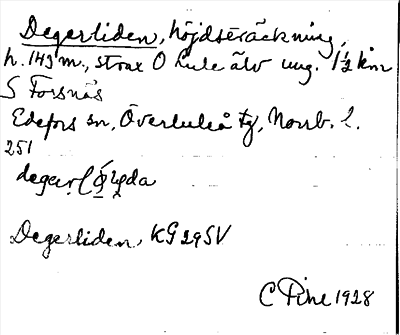 Degerliden, höjdsträckning,
h. 149 m., strax O Lule älv ung. 1½ km
S Forsnäs
Edefors sn, Överluleå tg, Norrb. l.
251
Degerliden, KG 29 SV
C Pihe 1928